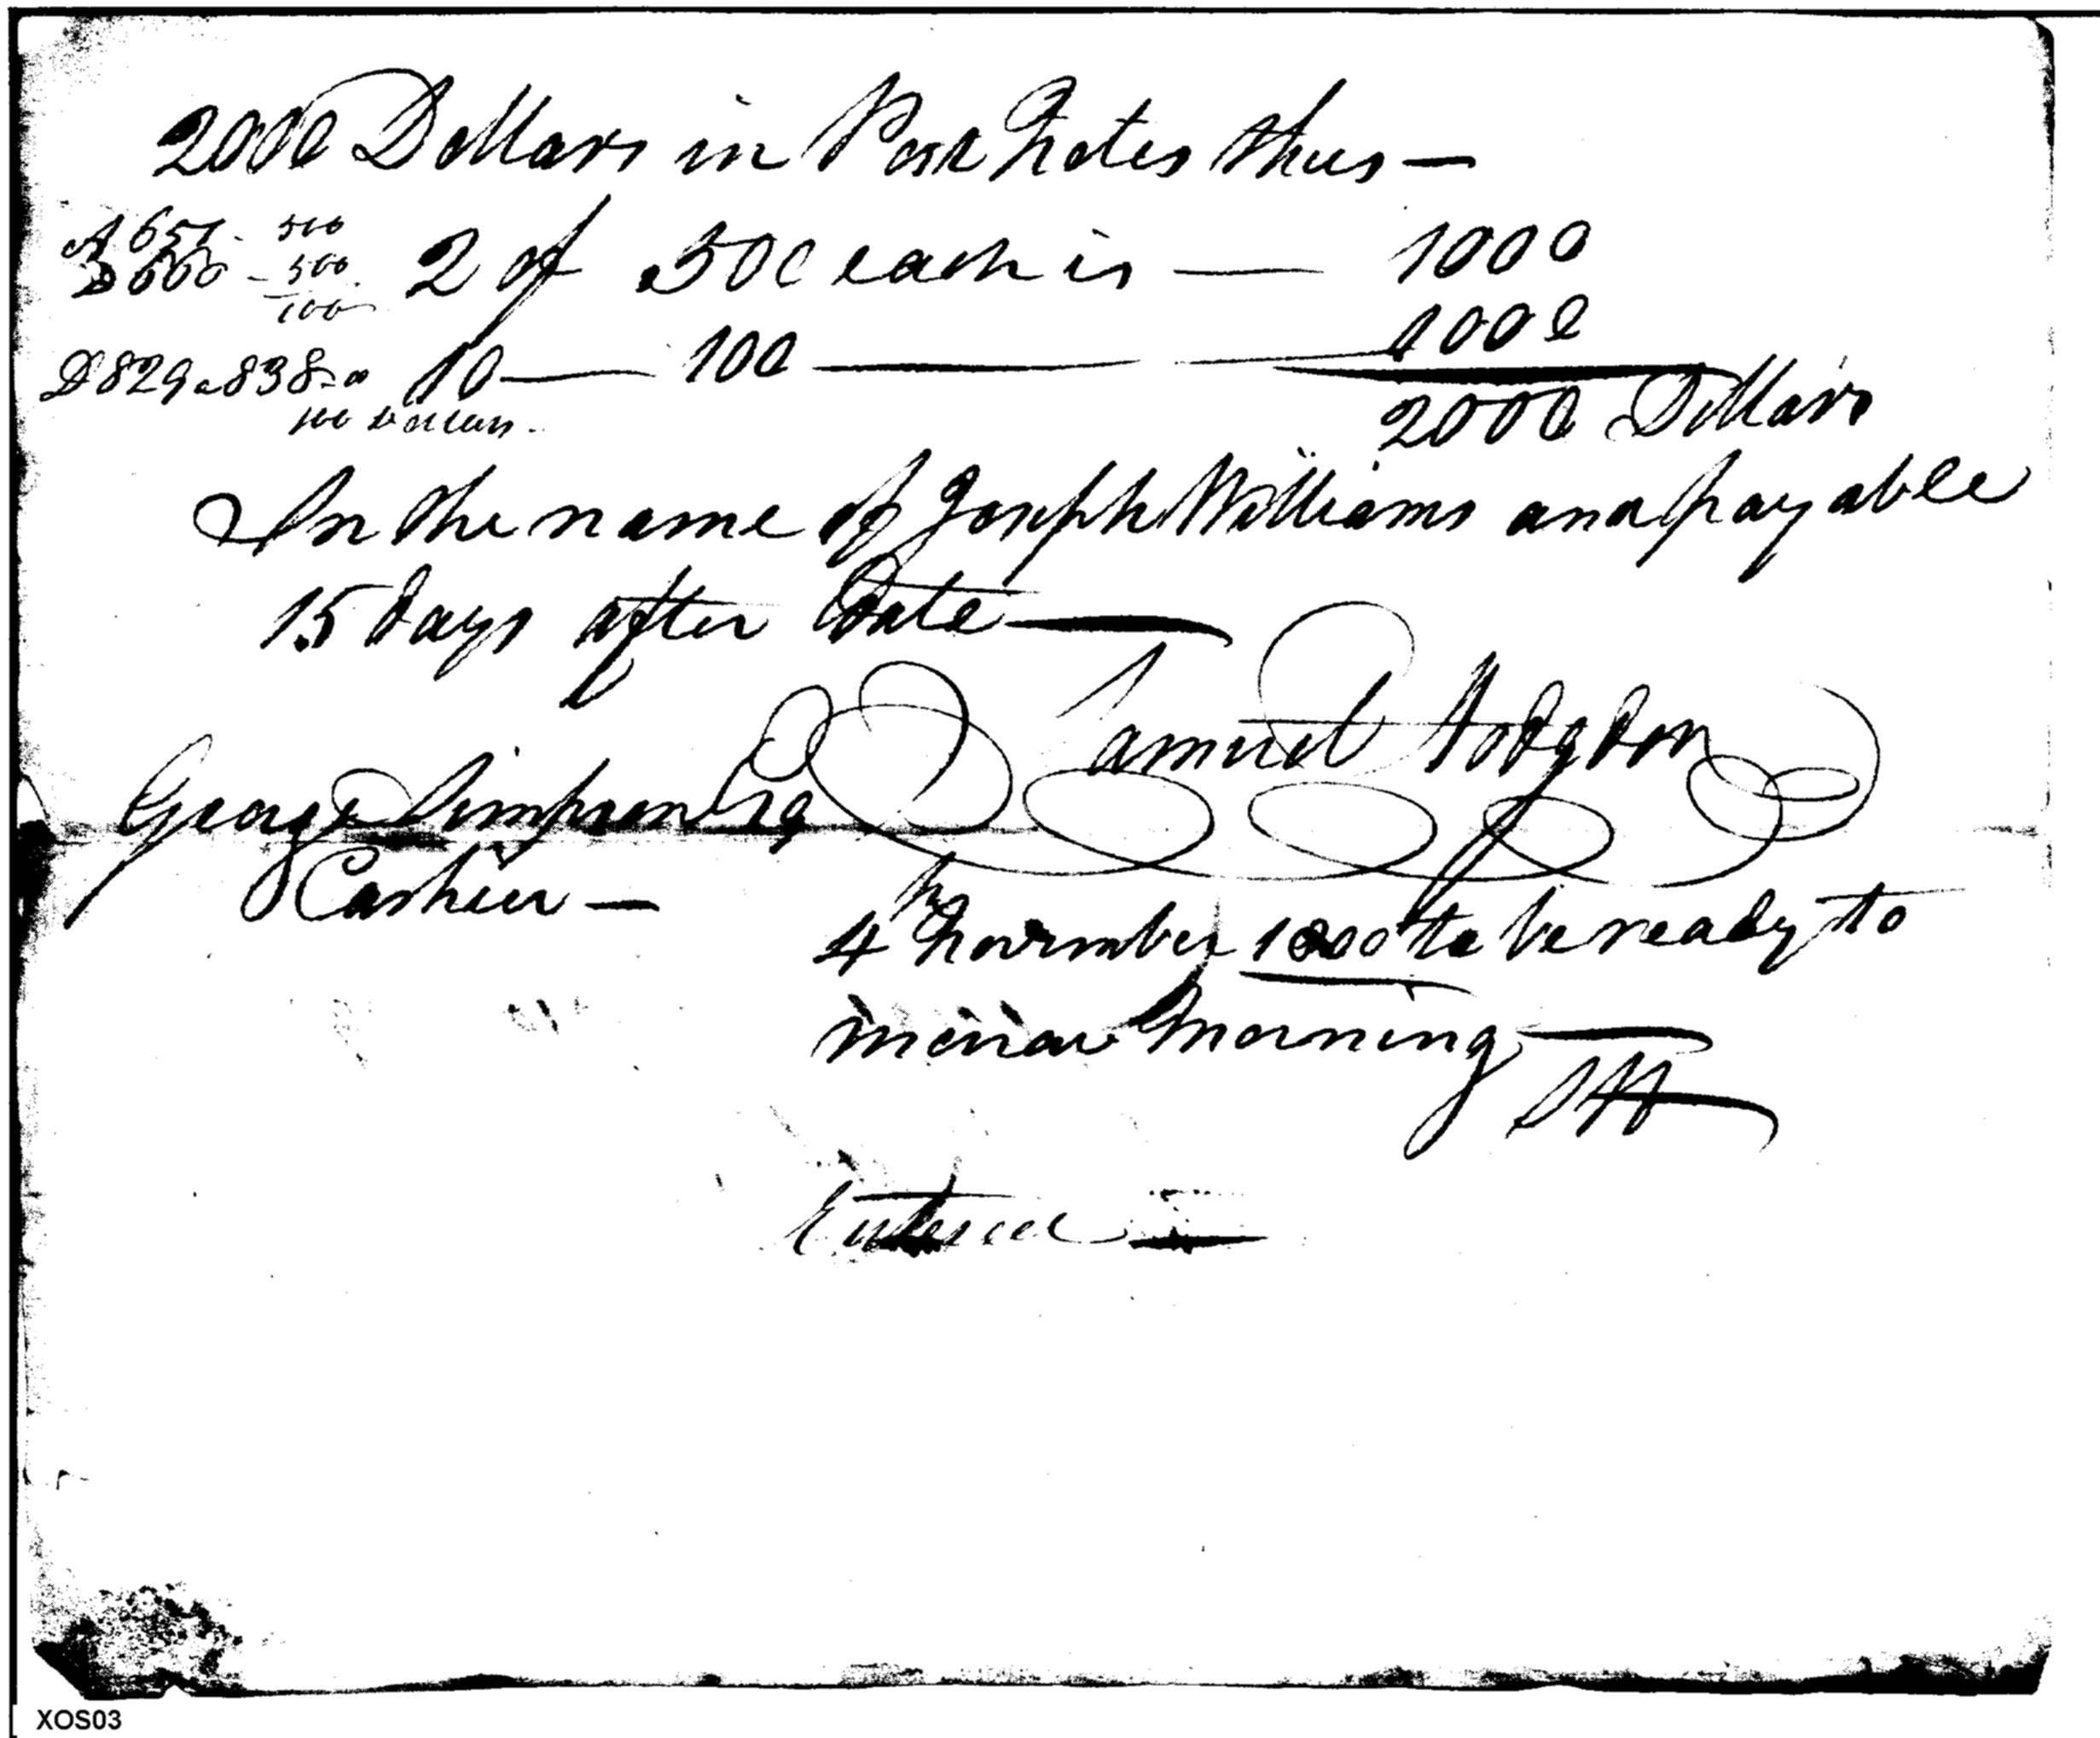 2000 Dollars in Post Notes thus —
A 651 - 500
B 600 - 500
100
2 of 500 each is — 1000
D 829 a 838 - a 10 — 100 — 1000
100 Dollars -
2000 Dollars
In the name of Joseph Williams and payable
15 days after Date —
Samuel Hodgdon
George Simpson Esq
Cashier —
4th November 1800 to be ready to
morrow morning —
SH
Entered —
XOS03